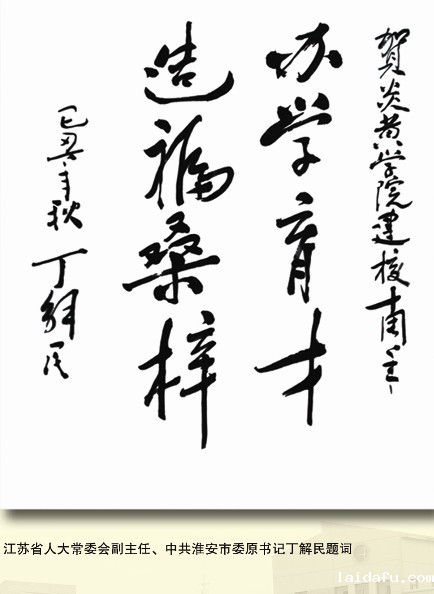 贺炎黄学院建校周年
办学育才
造福桑梓
己丑年秋 丁解民
江苏省人大常委会副主任、中共淮安市委原书记丁解民题词
laidafu.com